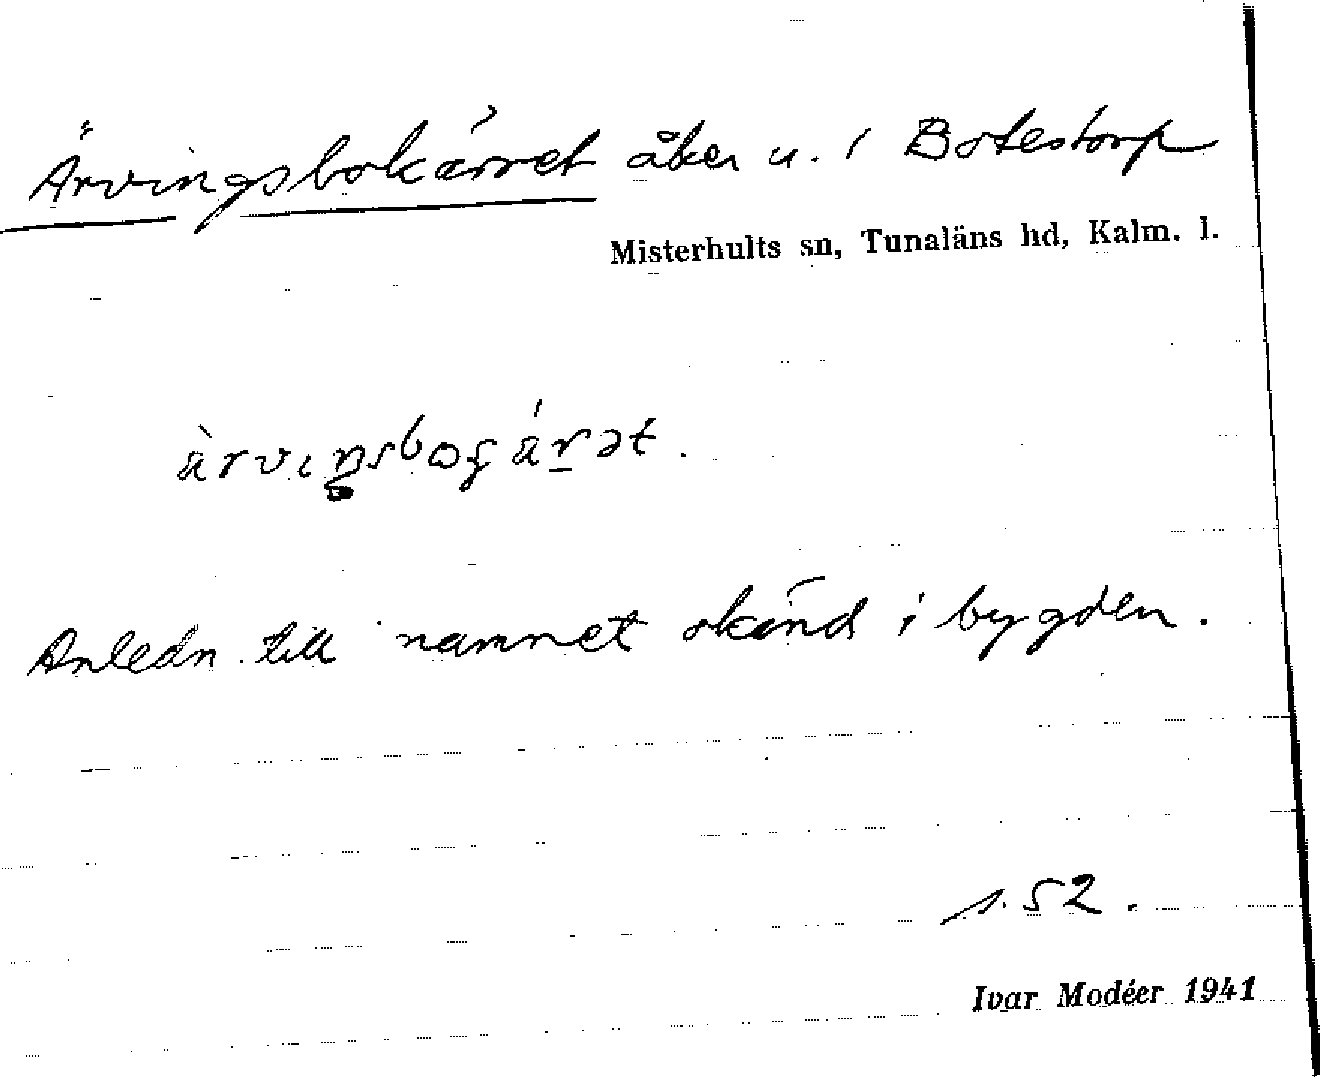 Ärvingsbokärret åker u. i Botestorp
Misterhults sn, Tunaläns hd, Kalm. l.
Anledn. till namnet okänd i bygden.
s. 52.
Ivar Modéer 1941